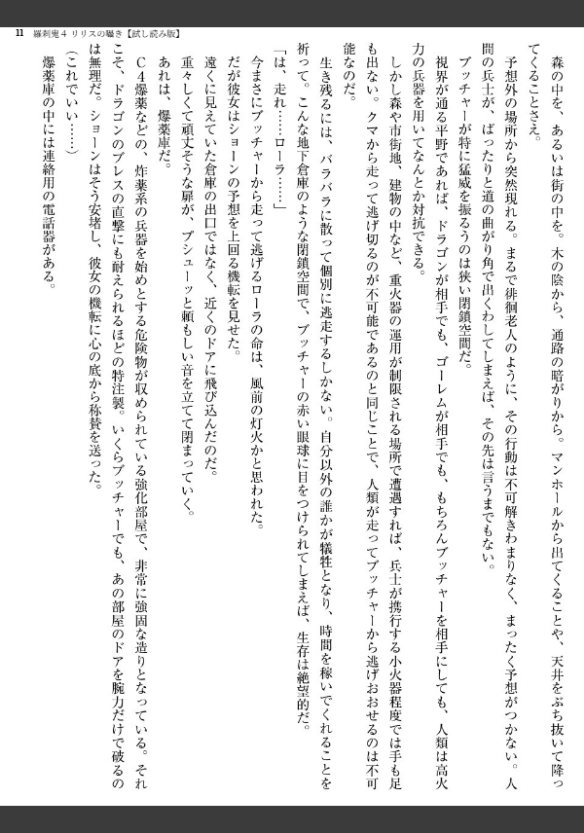 11　羅刹鬼４ リリスの囁き【試し読み版】
　森の中を、あるいは街の中を。木の陰から、通路の暗がりから。マンホールから出てくることや、天井をぶち抜いて降っ
てくることさえ。
　予想外の場所から突然現れる。まるで徘徊老人のように、その行動は不可解きわまりなく、まったく予想がつかない。人
間の兵士が、ばったりと道の曲がり角で出くわしてしまえば、その先は言うまでもない。
　ブッチャーが特に猛威を振るうのは狭い閉鎖空間だ。
　視界が通る平野であれば、ドラゴンが相手でも、ゴーレムが相手でも、もちろんブッチャーを相手にしても、人類は高火
力の兵器を用いてなんとか対抗できる。
　しかし森や市街地、建物の中など、重火器の運用が制限される場所で遭遇すれば、兵士が携行する小火器程度では手も足
も出ない。クマから走って逃げ切るのが不可能であるのと同じことで、人類が走ってブッチャーから逃げおおせるのは不可
能なのだ。
　生き残るには、バラバラに散って個別に逃走するしかない。自分以外の誰かが犠牲となり、時間を稼いでくれることを
祈って。こんな地下倉庫のような閉鎖空間で、ブッチャーの赤い眼球に目をつけられてしまえば、生存は絶望的だ。
「は、走れ……ローラ……」
　今まさにブッチャーから走って逃げるローラの命は、風前の灯火かと思われた。
　だが彼女はショーンの予想を上回る機転を見せた。
　遠くに見えていた倉庫の出口ではなく、近くのドアに飛び込んだのだ。
　重々しくて頑丈そうな扉が、プシューッと頼もしい音を立てて閉まっていく。
　あれは、爆薬庫だ。
　Ｃ４爆薬などの、炸薬系の兵器を始めとする危険物が収められている強化部屋で、非常に強固な造りとなっている。それ
こそ、ドラゴンのブレスの直撃にも耐えられるほどの特注製。いくらブッチャーでも、あの部屋のドアを腕力だけで破るの
は無理だ。ショーンはそう安堵し、彼女の機転に心の底から称賛を送った。
（これでいい……）
　爆薬庫の中には連絡用の電話器がある。